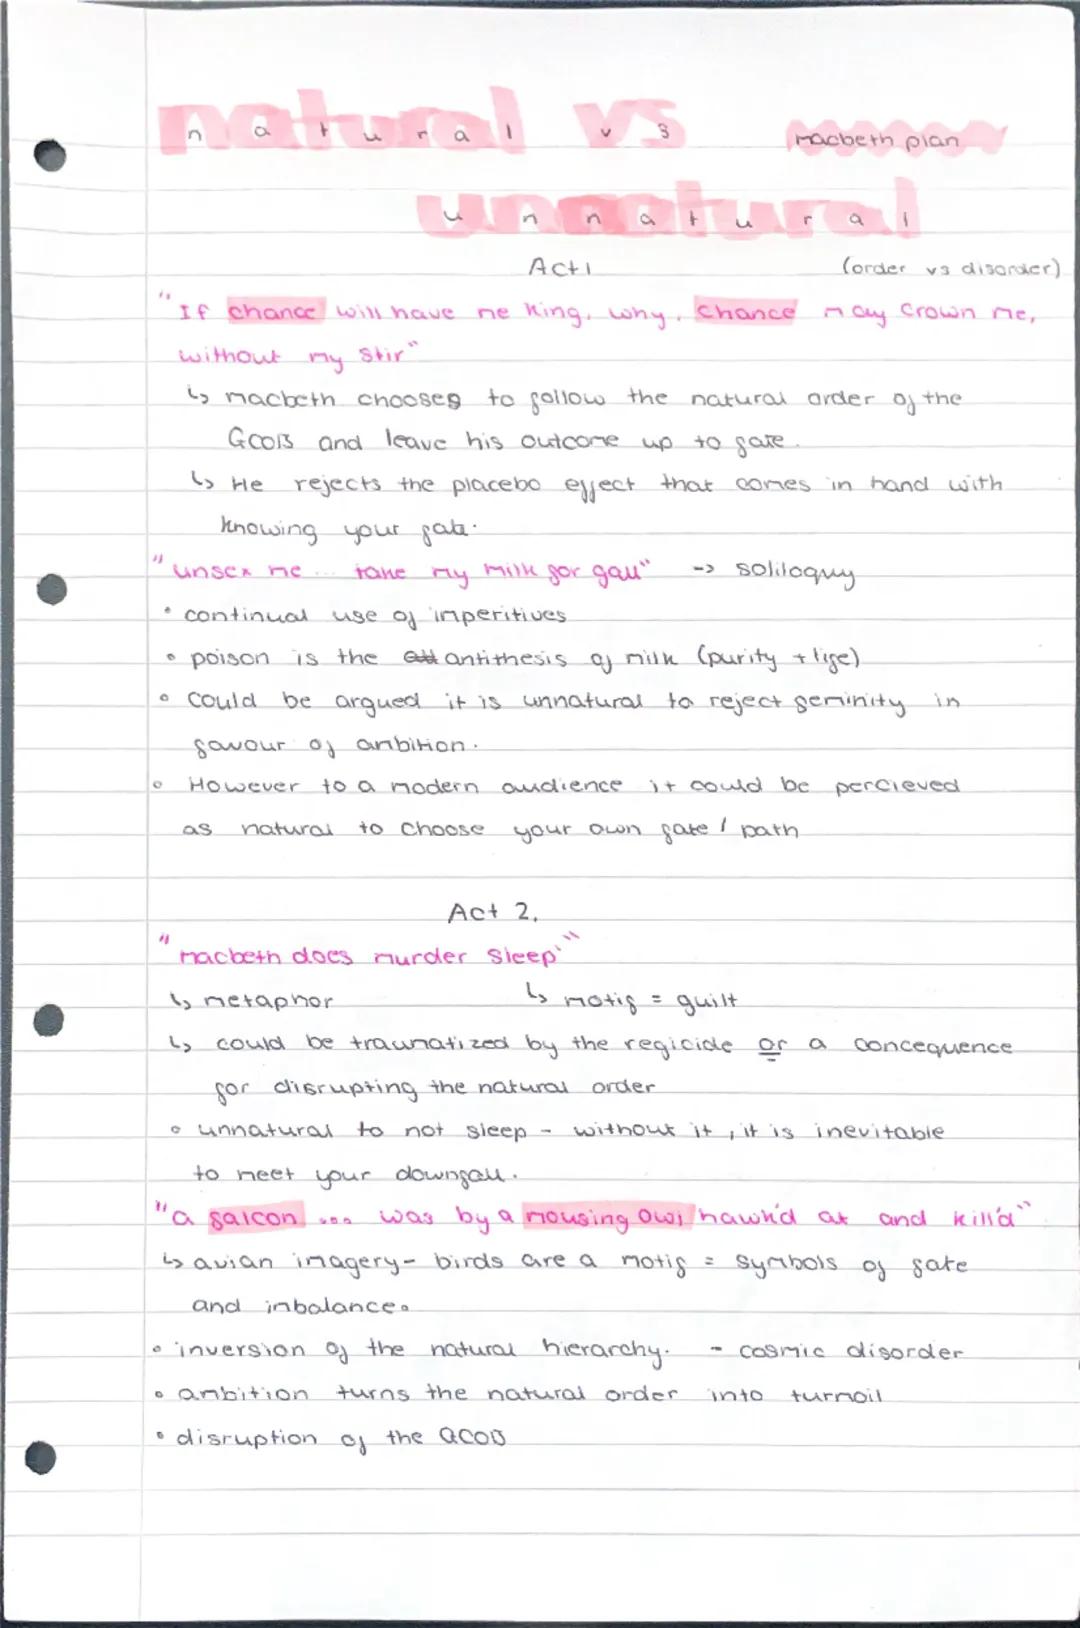 natural vs
macbeth plan
unnatural
Act 1 (order vs disorder)
"If chance will have me King, why, chance may crown me,
without my stir"
↳ macbeth chooses to follow the natural order of the
GCOB and leave his outcome up to fate.
↳ He rejects the placebo effect that comes in hand with
knowing your fate.
"unsex me ... take my milk for gall" -> soliloquy
• continual use of imperitives
• poison is the antithesis of milk (purity + life)
• could be argued it is unnatural to reject feminity in
favour of ambition.
• However to a modern audience it could be percieved
as natural to choose your own fate / path
Act 2.
"macbeth does murder sleep"
↳ metaphor ↳ motif = guilt
↳ could be traumatized by the regicide or a concequence
for disrupting the natural order
• unnatural to not sleep - without it, it is inevitable
to meet your downfall.
"a falcon ... was by a mousing owl hawk'd at and kill'd"
↳ avian imagery - birds are a motif = symbols of fate
and imbalance.
• inversion of the natural hierarchy. - cosmic disorder
• ambition turns the natural order into turmoil
• disruption of the GCOB